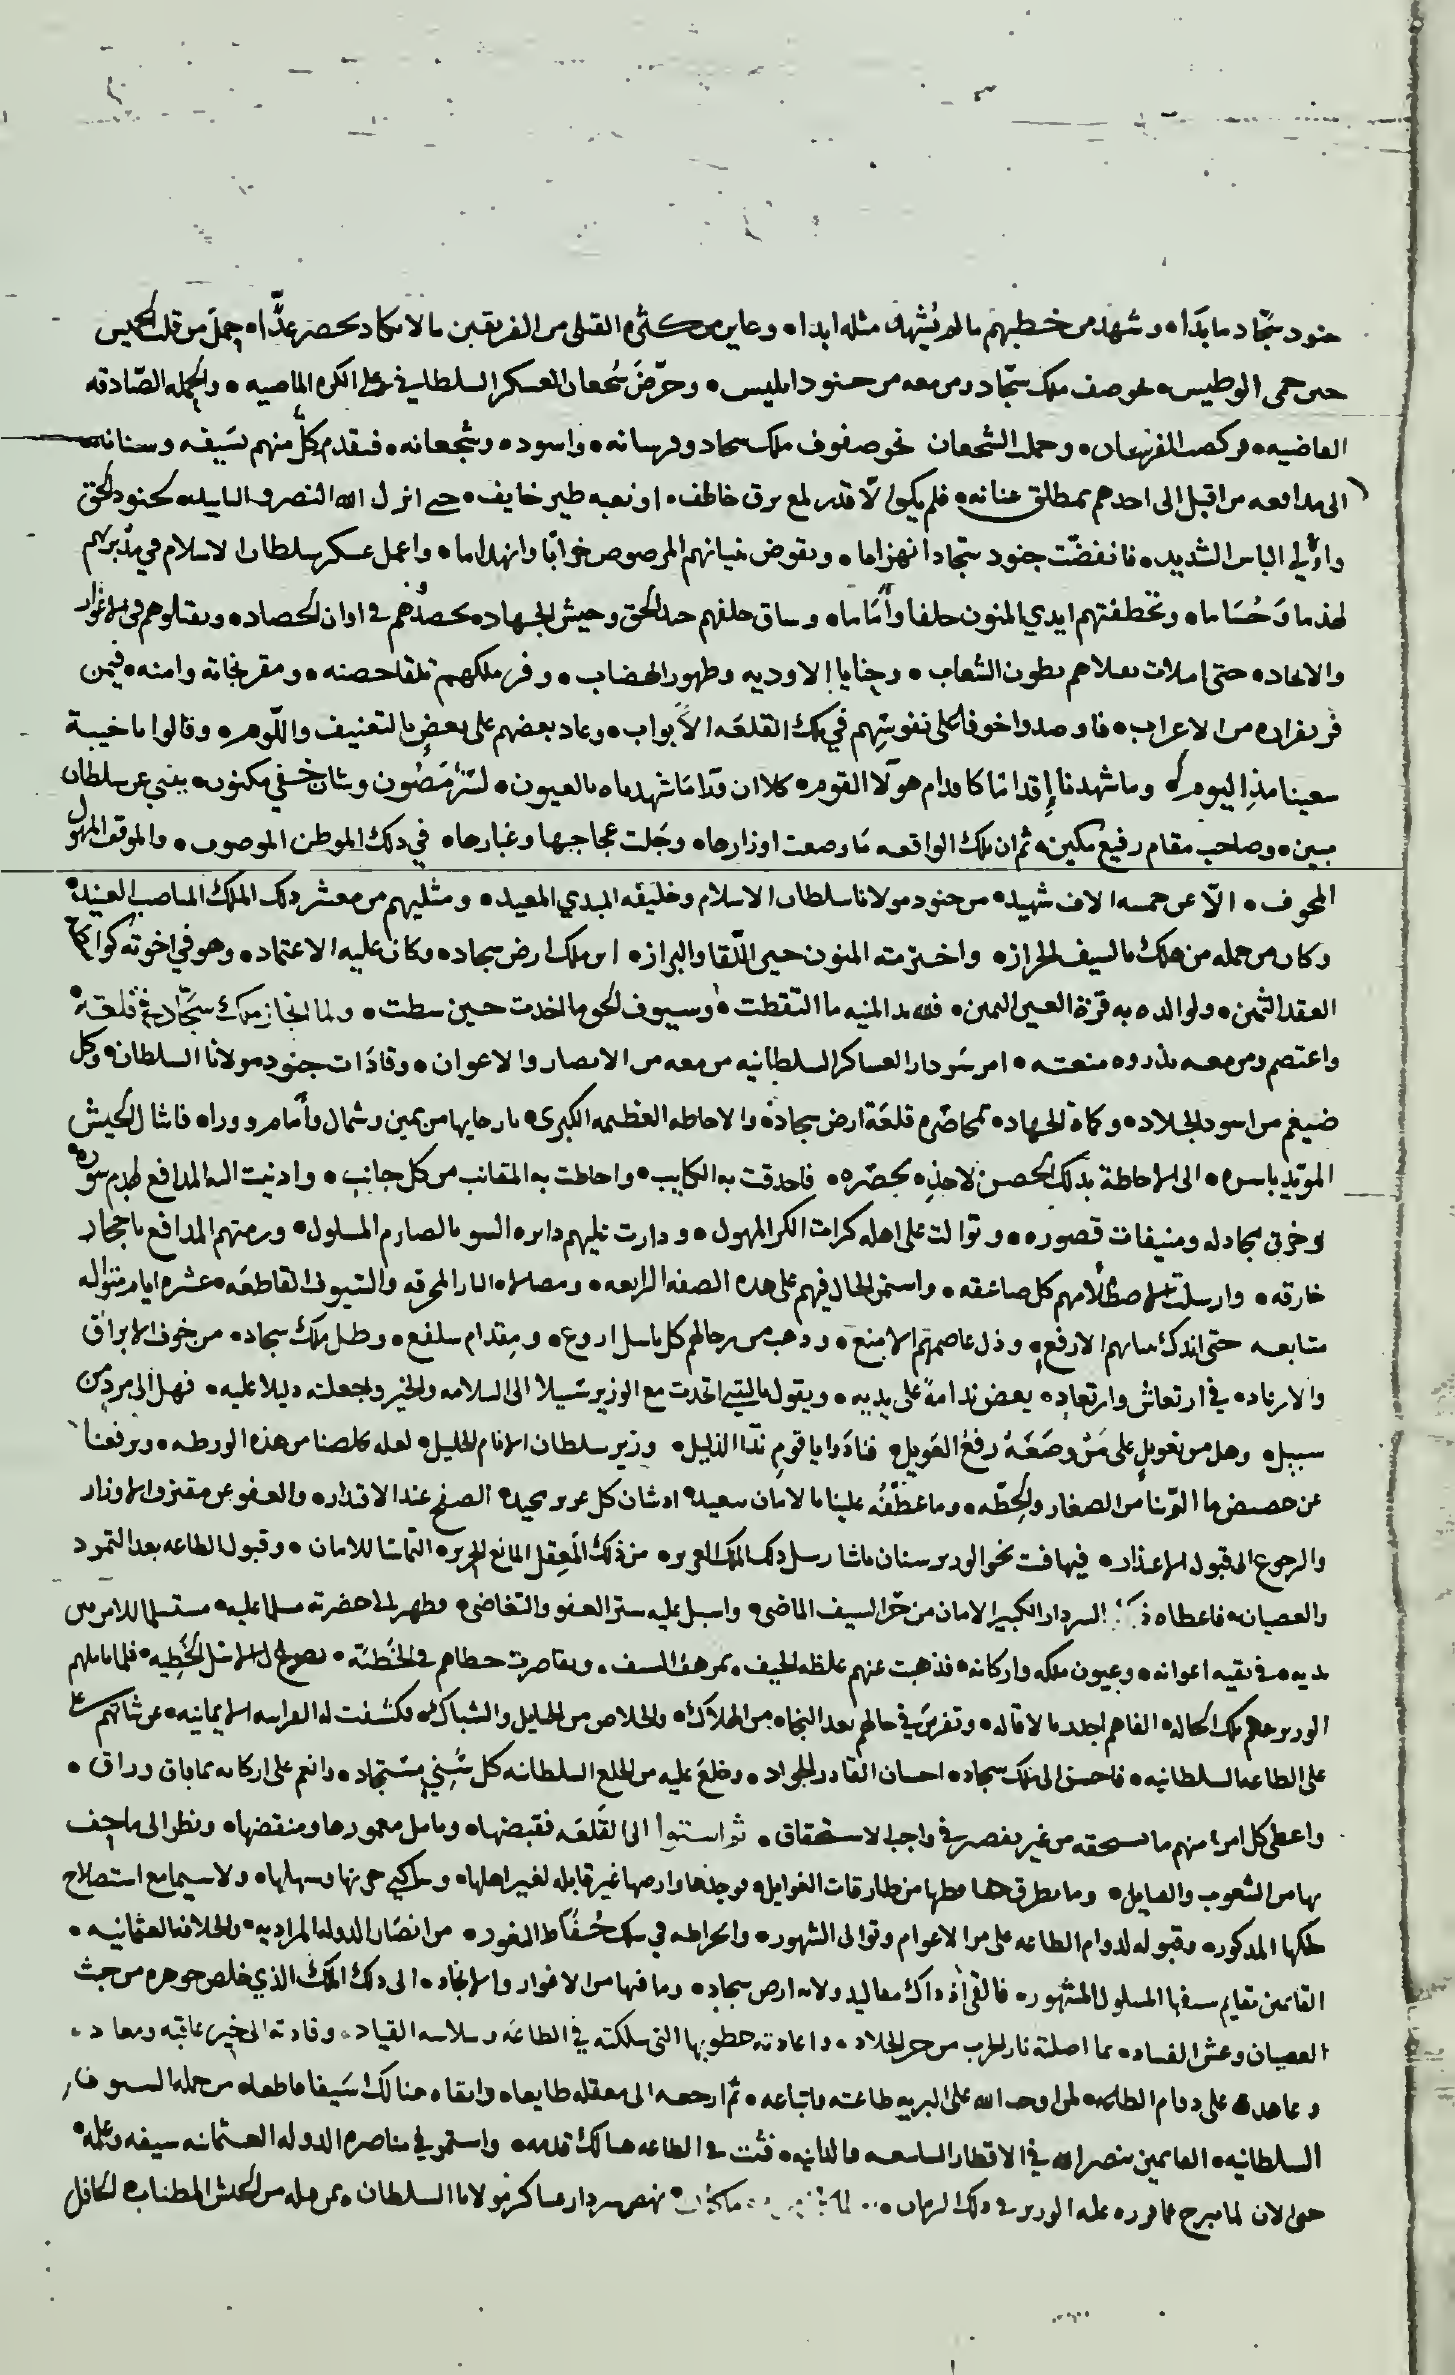 جنود سجاد ما بدا، وشهد من خطبهم ما لم يشهد مثله ابدا، وعاين من كثرة القتلى من الفريقين ما لا يكاد يحصر عدّا، حمل من قلب الخميس
حتى حمى الوطيس، نحو صف ملك سجاد ومن معه من جنود ابليس، وحرّض شجعان العسكر السلطاني على الكره الماضيه، والحمله الصّادقه
القاضيه، فركضت الفرسان، وحملت الشجعان نحو صفوف ملك سجاد وفرسانه، واسوده، وشجعانه، فتقدم كلّ منهم بسَيفه وسنانه
الى مدافعه من اقبل الى احدهم بمطلق عنانه، فلم يكن الّا قدر لمع برق خاطف، او نعبه طير خايف، حتى انزل الله النصر والتاييد، لجنود الحق
واولي الباس الشديد، فانفضّت جنود سجاد انهزاما، وتقوض بنيانهم المرصوص خرابًا وانهداما، واعمل عسكر سلطان الاسلام في مدبرهم
لهذما وَحُسَاما، وتخطفتهم ايدي المنون خلفا وأمَاما، وساق خلفهم جند الحق وجيش الجهاد، بحصدهم في اوان الحصاد، ويقتلوهم في الاغوار
والانجاد، حتى امتلات بقتلاهم بطون الشعاب، وخبايا الاوديه وظهور الهضاب، وفر ملكهم تلقا حصنه، ومقر نجاته وامنه، فيمن
فر بفراره من الاعراب، فاوصدوا خوفا على نفوسهم في تلك القلعَه الابواب، وعاد بعضهم على بعض بالتعنيف واللّوم، وقالوا ما خيبة
سعينا هذا اليوم، وما شهدنا إقداما كاقدام هولا القوم، كلا ان وَرَا ما شهدناه بالعيون، لسِرٌّ مَصُون وشان خفي مكنون، ينبي عن سلطان
مبين، وصاحب مقام رفيع مكين، ثم ان تلك الواقعه مَا وضعت اوزارها، وجَلت عجاجها وغبارها، في ذلك الموطن الموصوف، والموقف المهول
المخوف، الّا عن خمسه الاف شهيد، من جنود مولانا سلطان الاسلام وخليفه المبدي المعيد، ومثليهم من معشر ذلك الملك المناصب العنيد،
وكان من جمله من هلك بالسيف الجراز، واخترمته المنون حين اللّقا والبراز، ابن ملك ارض سجاد، وكان عليه الاعتماد، وهو في اخوته كواسطة
العقد الثمين، ولوالده به قرّة العين اليمين، فلله يد المنيه ما التقطت، وسيوف الحق ما اخذت حين سطت، ولما انحاز ملك سجّاد في قلعته،
واعتصم ومن معه بذروه منعته، امر سَردار العساكر السلطانيه من معه من الانصار والاعوان، وقادَات جنود مولانا السلطان، وكل
ضيغم من اسود الجلاد، وكماة الجهاد، بمحاصَره قلعَة ارض سجاد، والاحاطه العظيمه الكبرى، بارجايها من يمين وشمال وأمام وورا، فانثال الجيش
المويّد باسره، الى الاحاطة بذلك الحصن لاخذه بحصَره، فاحدقت به الكتايب، واحاطت به المقانب من كل جانب، وادنيت اليه المدافع لهدم سوره،
وخرق جنادله ومنيفات قصوره، وتوالت على اهله كرات الكر المهول، ودارت عليهم دايره السو بالصارم المسلول، ورمتهم المدافع باحجار
خارقه، وارسلت لاصطلامهم كل صاعقه، واستمر الحال فيهم على هذه الصفه الرابعه، ومصلاة النار المحرقه والسّيوف القاطعَه، عشره ايام متواليه
متتابعه حتى اندك بنيانهم الارفع، وذل عاصمهم الامنع، وذهب من رجالهم كل باسل اروع، ومِقدام سلفع، وظل ملك سجاد، من خوف الابراق
والارعاد، في ارتعاش وارتعاد، يعض ندامةً على يديه، ويقول ياليتني اتخذت مع الوزير سَبيلا الى السلامه والخير وجعلته دليلا عليه، فهل الى مردٍ من
سبيل، وهل من تعويل على مَنْ وضعَهُ رفعُ العَويل، فنادَوا يا قومِ نِدَا الذليل، وزير سلطان الانام الجليل، لعله يخلصنا من هذه الورطه، ويرفعنا
عن حضيض ما الزمنا من الصغار والحِطّه، وما عَطْفُه علينا بالامان ببعيد، اذ شان كل عزيز مجيد، الصفح عند الاقتدار، والعفو عن مقترف الاوزار
والرجوع الى قبول الاعذار، فتهافت نحو الوزير سنان باشا رسل ذلك الملك العزيز، من ذلك المَعقِل المانع الحريز، التماسًا للامان، وقبول الطاعه بعد التمرد
والعصيان، فاعطاه السردار الكبير الامان من حَرّ السيف الماضي، واسبل عليه ستر العفو والتغاضي، فظهر الى حضرته مسلما عليه، مستسلما للامر بين
يديه، في بقيه اعوانه، وعيون ملكه واركانه، فذهبت عنهم غلظه الحيف، بمرهف السيف، وتقاصرت خطاهم في الخطيّه، بصولة الاسَل الخَطيه، فلما قابلهم
الوزير وهم بتلك الحاله، الفاهم اجدر بالاقاله، وتفرسَ في حالهم بعد النجاه من الهلاك، والخلاص من الحبايل والشباك، فكشفت له الفراسه الايمانيه، عن ثباتهم
على الطاعه السلطانيه، فاحسن الى ملك سجاد، احسان القادر الجواد، وخلعَ عليه من الخلع السلطانيه كل سَنِيّ مستجاد، وانعم على اركانه بما فاق وراق،
واعطى كل امرء منهم ما يستحقه من غير تقصير في واجب الاستحقاق، ثم استوا الى القَلعَه فقبضها، وتامل معمورها ومنقضها، ونظر الى ما حف
بها من الشعوب والقبايل، وما تطرق من طارقات الغوايل، فوجدها وارضها غير قابله لغير اهلها، وساكني حزنها وسهلها، ولا سيما مع استصلاح
ملكها المذكور، وقبوله لدوام الطاعه على مر الاعوام وتوالى الشهور، وانخراطه في سلك حُفّاظ الثغور، من انصَار الدوله المراديه، والخلافه العثمانيه،
القايمين بقايم سيفها المسلول المشهور، فالقى اذ ذاك مقاليد ولايه ارض سجاد، وما فيها من الاغوار والانجاد، الى ذلك الملك الذي خلص جوهره من خبث
العصيان وغش الفساد، بما اصلته نار الحرب من حر الجلاد، واعادته خطوبها التي سلكته في الطاعَه وسلاسه القياد، وقادته الى خير عاقبه ومعاد،
وعاهده على دوام الطاعه، لمن اوجب الله على البريه طاعته واتباعه، ثم ارجعه الى معقله طايعا، وابقاه هنالك سَيفا قاطعا، من جمله السيوف
السلطانيه، القايمين بنصر الله في الاقطار الشاسعه والدانيه، فثبت في الطاعه هنالك قدمه، واستمر في مناصره الدوله العثمانيه سيفه وعلمه،
حتى الان لما يبرح عما قرره عليه الوزير في ذلك الزمان، نهض سردار عساكر مولانا السلطان، بمن معه من الجيش المطناب، الحافل